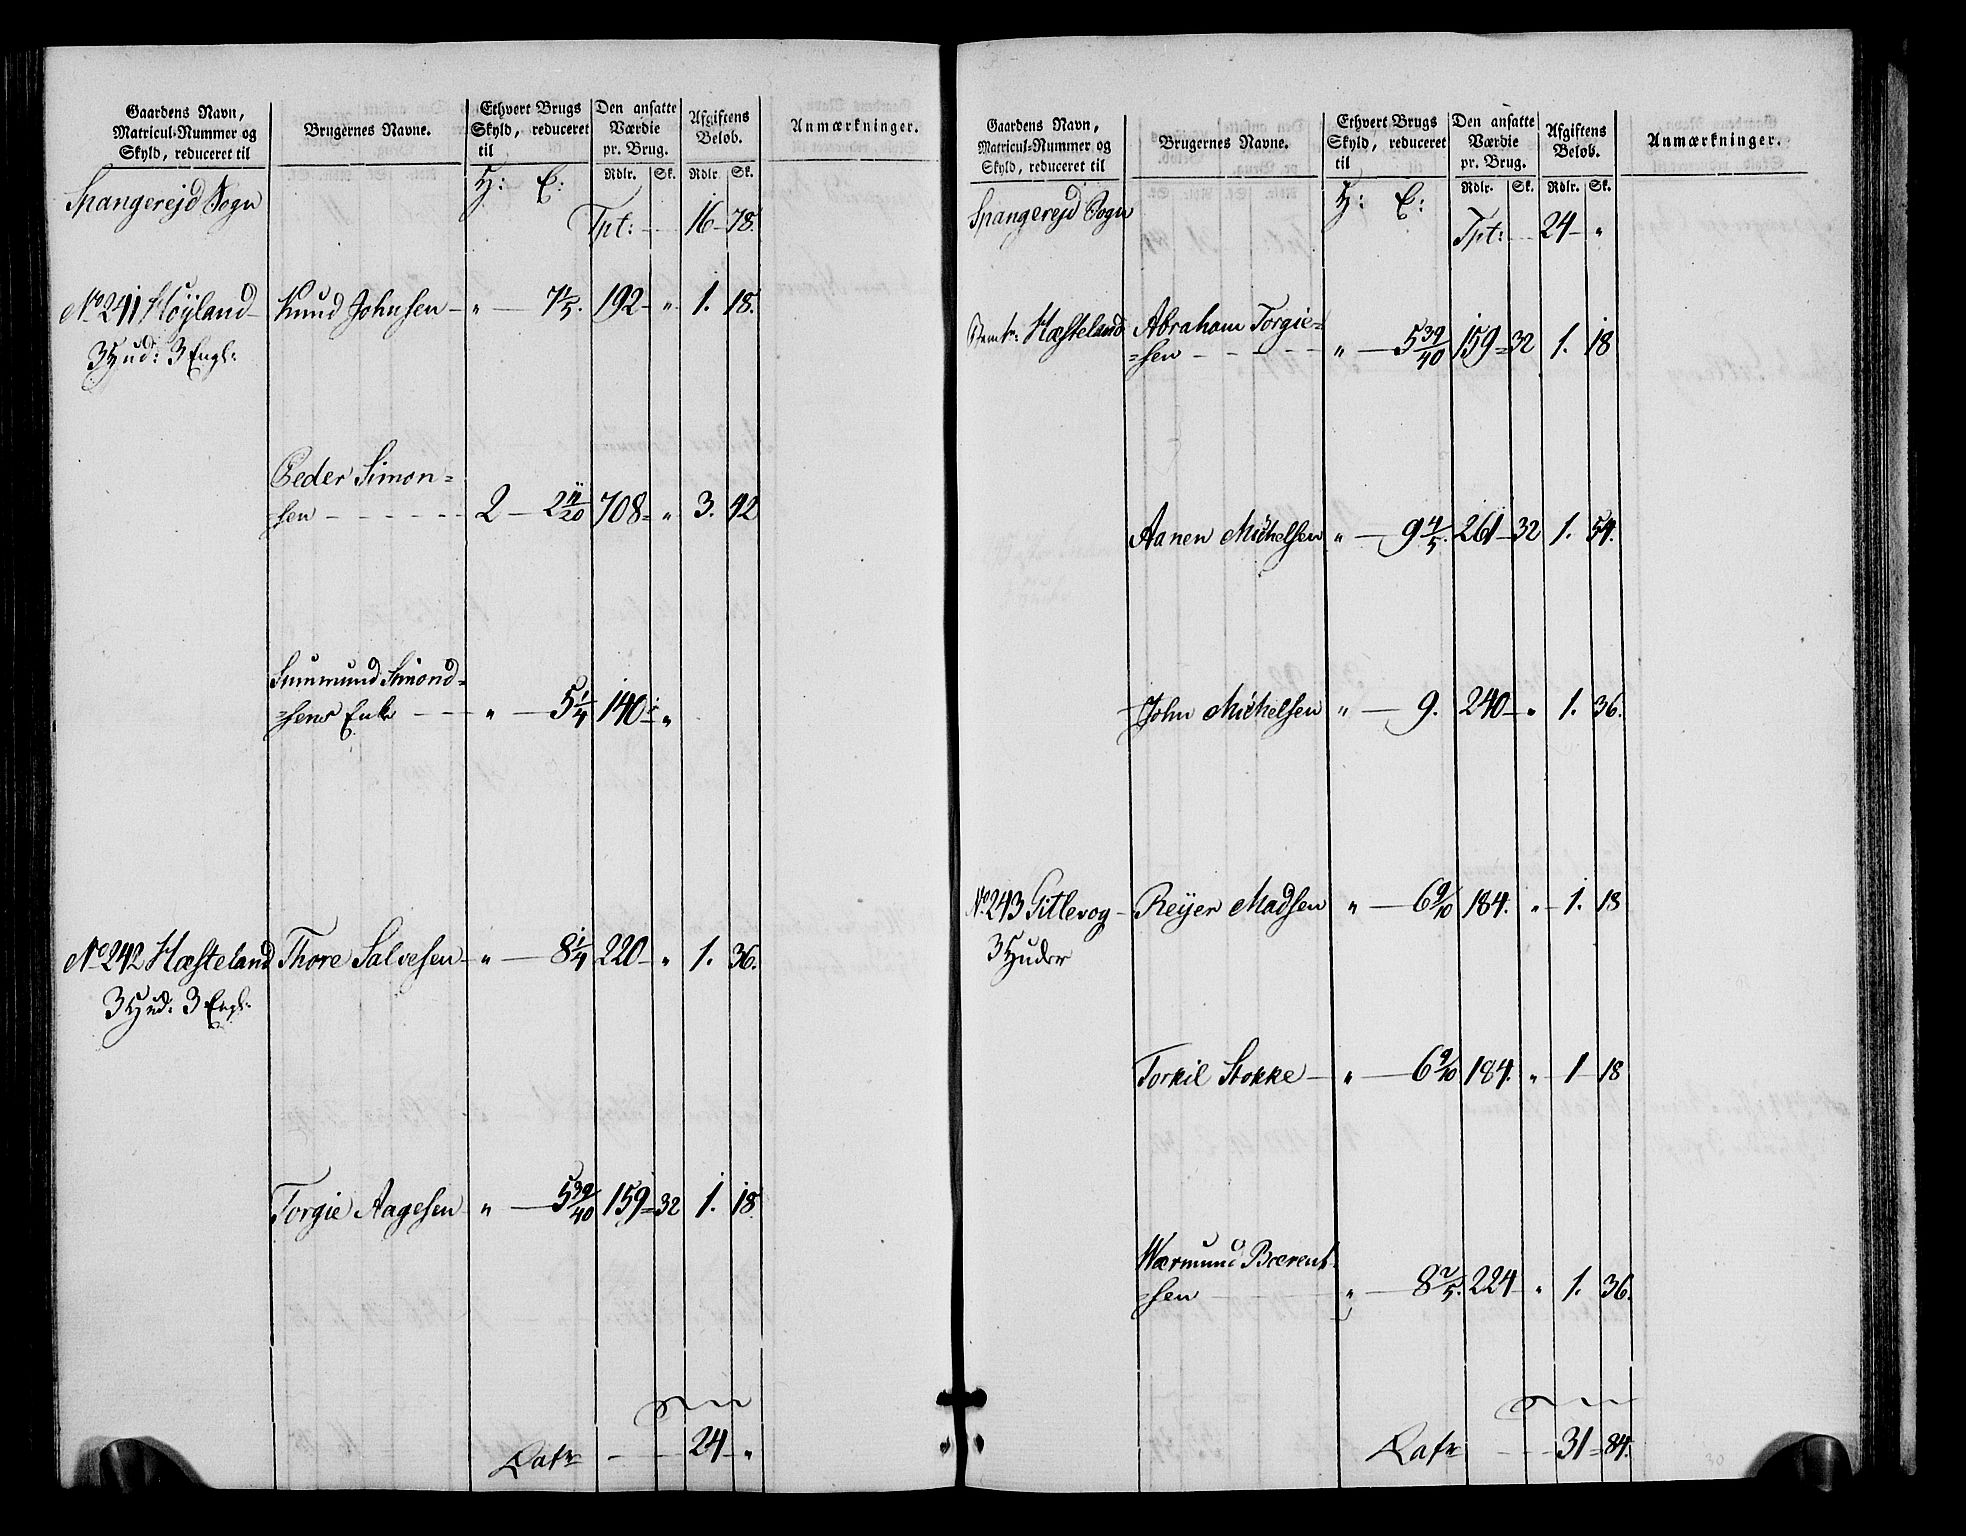 Gaardens Navn, Matricul-Nummer og Skyld, reduceret til
Brugernes Navne.
Ethvert Brugs Skyld, reduceret til
Den ansatte Værdie pr. Brug.
Afgiftens Beløb.
Anmærkninger.
Rdlr. Sk. Rdlr. Sk.
Spangerejd Sogn H: E:
Tpt: 16 - 78.
No 241 Høyland - Knud Johnsen - " - 7 1/5. 192 - " 1. 18.
3 Hud: 3 Engl:
Peder Simon=
=sen - - - - - 2 - 2 11/20 708 = " 3. 42
Simmund Simond=
=sens Enke - - " - 5 1/4 140 = "
No 242 Hæsteland Thore Salvesen - " - 8 1/4 220 - " 1. 36.
3 Hud: 3 Engl:
Torgie Aagesen " - 5 39/40 159 = 32 1. 18.
Latr - - - 24 - "
Gaardens Navn, Matricul-Nummer og Skyld, reduceret til
Brugernes Navne.
Ethvert Brugs Skyld, reduceret til
Den ansatte Værdie pr. Brug.
Afgiftens Beløb.
Anmærkninger.
Rdlr. Sk. Rdlr. Sk.
Spangerejd Sogn H: E:
Tpt: 24 - "
Hæsteland Abraham Torgie=
=sen - - - - - " - 5 39/40 159 = 32 1. 18
Aanen Michelsen " - 9 4/5. 261 - 32 1. 54.
John Michelsen " - 9. 240 - " 1. 36.
No 243 Gitlevog - Reyer Madsen " - 6 9/10 184. " - 1. 18
3 Huder
Torkil Stokke - " - 6 9/10 184. " - 1 - 18
Wærmund Bærent=
=sen - - - " - 8 2/5. 224 - " 1. 36.
Latr - - - 31 = 84.
30